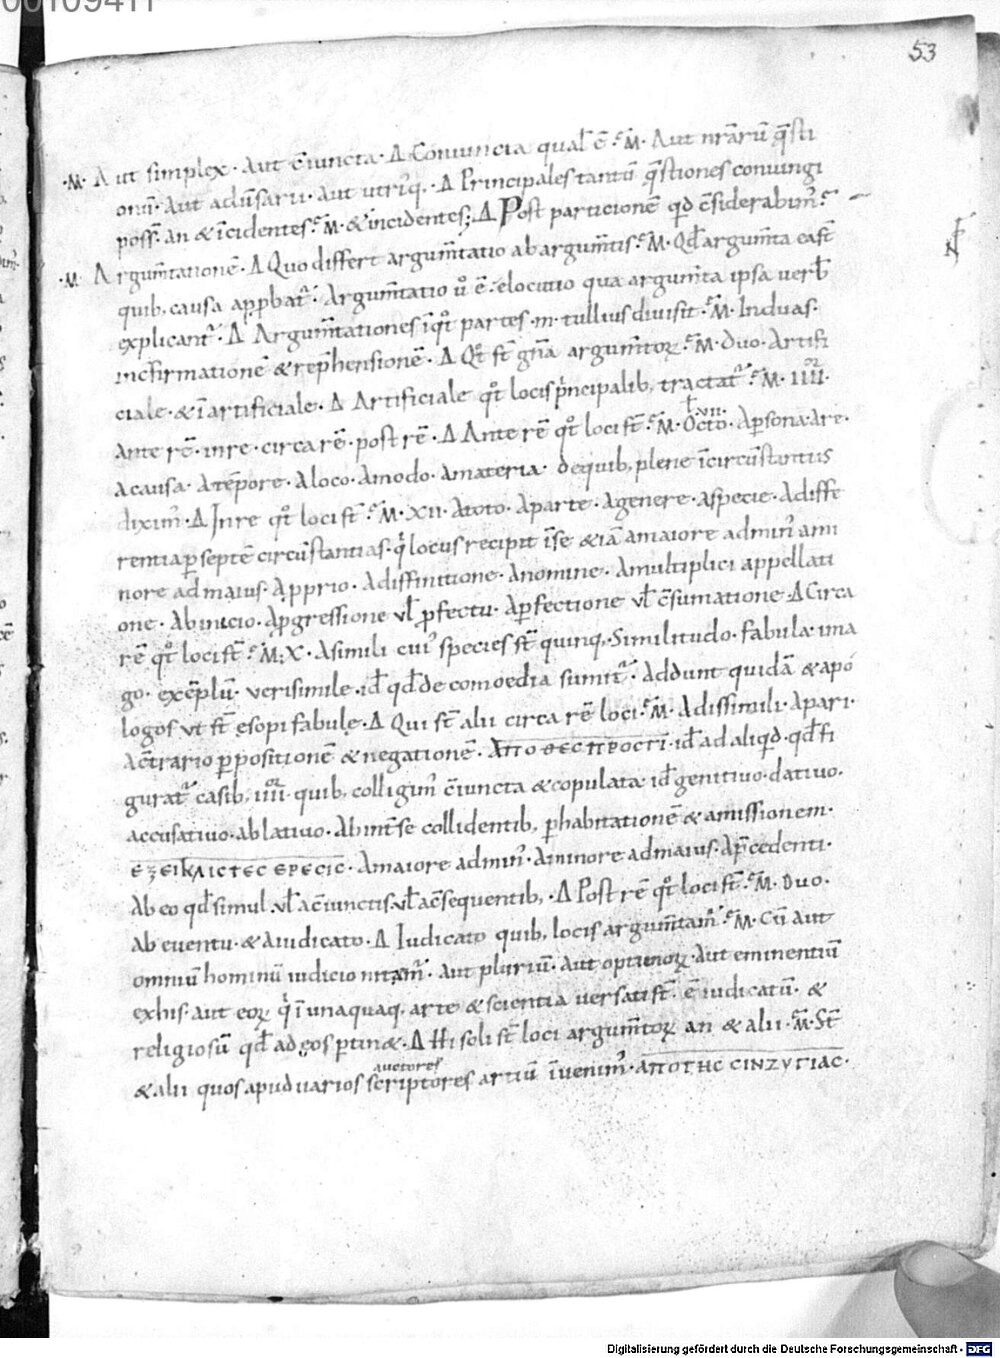 53
·M· Aut simplex · aut c̄iuncta · Δ Coniuncta qual̄ ē · M̄ · Aut nr̄arū q̄sti
onū · aut adūsarii · aut utriq; · Δ Principales tantū q̄stiones coniungi
poss̄ · an & īcidentes · M̄ · & incidentes; Δ Post particionē qd̄ c̄siderabim᾿
·M· Argum̄tationē · Δ Quo differt argum̄tatio ab argum̄tis · M̄ · Qd̄ argum̄ta ea st̄
quib; causa app̱bat᾿ · Argum̄tatio ū ē elocutio qua argum̄ta ipsa verb̄
explicant᾿ · Δ Argum̄tationes ī qt̊ partes · m · tullius diuisit · M̄ · In duas ·
in c̄firmationē & rep̄hensionē · Δ Qt̊ st̄ gn̄a argum̄toꝝ · M̄ · Duo · Artifi
ciale · & īartificiale · Δ Artificiale qt̊ locis p̄ncipalib; tractat᾿ · M̄ · IIII ·
Ante rē · in re · circa rē · post rē · Δ Ante rē qt̊ loci st̄ · M̄ · Octo · A persona · a re ·
ł · vii ·
a causa · a tēpore · a loco · a modo · a materia · de quib; plene ī circūstantiis
dixim᾿ · Δ In re qt̊ loci st̄ · M̄ · XII · A toto · a parte · a genere · a specie · a diffe
rentia ꝑ septē circūstantias · q̇ locus recipit ī se & iā a maiore ad min᾿ a mi
nore ad maius · a ꝓprio · a diffinitione · a nomine · a multiplici appellati
one · Ab inicio · a ꝓgressione vl̄ ꝓfectu · a ꝑfectione vl̄ c̄sumatione · Δ Circa
rē qt̊ loci st̄ · M̄ · X · A simili cui᾿ species st̄ quinq; · Similitudo · fabula · ima
go · exēplū · verisimile · id̄ qd̄ de comoedia sumit᾿ · Addunt quidā & apó
logos vt st̄ ęsopi fabulę · Δ Qui st̄ alii circa rē loci · M̄ · A dissimili · a pari ·
a c̄trario ꝑ positionē & negationē · ΑΠΟΘΕСΠΡΟСΤΙ · id̄ ad aliqd̄ · qd̄ fi
gurat᾿ casib; IIII · quib; colligim᾿ c̄iuncta & copulata id̄ genitiuo · datiuo ·
accusatiuo · ablatiuo · Ab int̄ se collidentib; ꝑ habitationē & amissionem ·
ΕΞΕΙΚΛΙСΤΕС ΕΡΕСΙС · A maiore ad min᾿ · a minore ad maius · a p̄cedenti ·
Ab eo qd̄ simul · vl̄ a c̄iunctis · vl̄ a c̄sequentib; · Δ Post rē qt̊ loci st̄ · M̄ · Duo ·
ab euentu · & a iudicato · Δ Iudicato quib; locis argum̄tam᾿ · M̄ · Cū aut
omniū hominū iudicio nitam᾿ · aut pluriū · aut optimoꝝ · aut eminentiū
ex his · aut eoꝝ q̇ ī unaquaq; arte & scientia versati st̄ · ē iudicatū · &
religiosū qd̄ ad ęos ꝑtin& · Δ Hi soli st̄ loci argum̄toꝝ an & alii · M̄ · St̄
auctores
& alii quos apud uarios scriptores artiū īuenim᾿ · ΑΠΟΤΗС СΙΝΖΥΓΙΑС ·
Digitalisierung gefördert durch die Deutsche Forschungsgemeinschaft - DFG